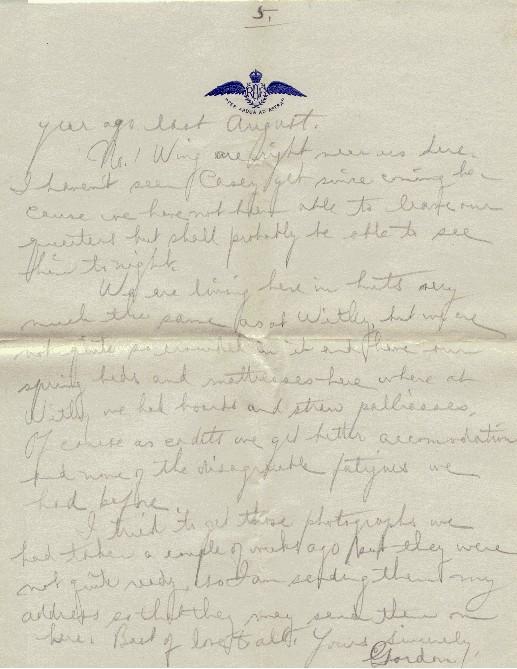 5.
RFC
PER ARDUA AD ASTRA
year ago last August.
No. 1 Wing are right near us here.
I haven't seen Casey yet since coming be-
cause we have not been able to leave our
quarters but shall probably be able to see
him tonight.
We are living here in huts very
much the same as at Witley, but we are
not quite so crowded in it and have our
spring beds and mattresses here where at
Witley we had boards and straw palliasses.
Of course as cadets we get better accommodation
and none of the disagreeable fatigues we
had before.
I tried to get those photographs we
had taken a couple of weeks ago but they were
not quite ready, so I am sending them my
address so that they may send them on
here. Best of love to all. Yours sincerely,
Gordon.